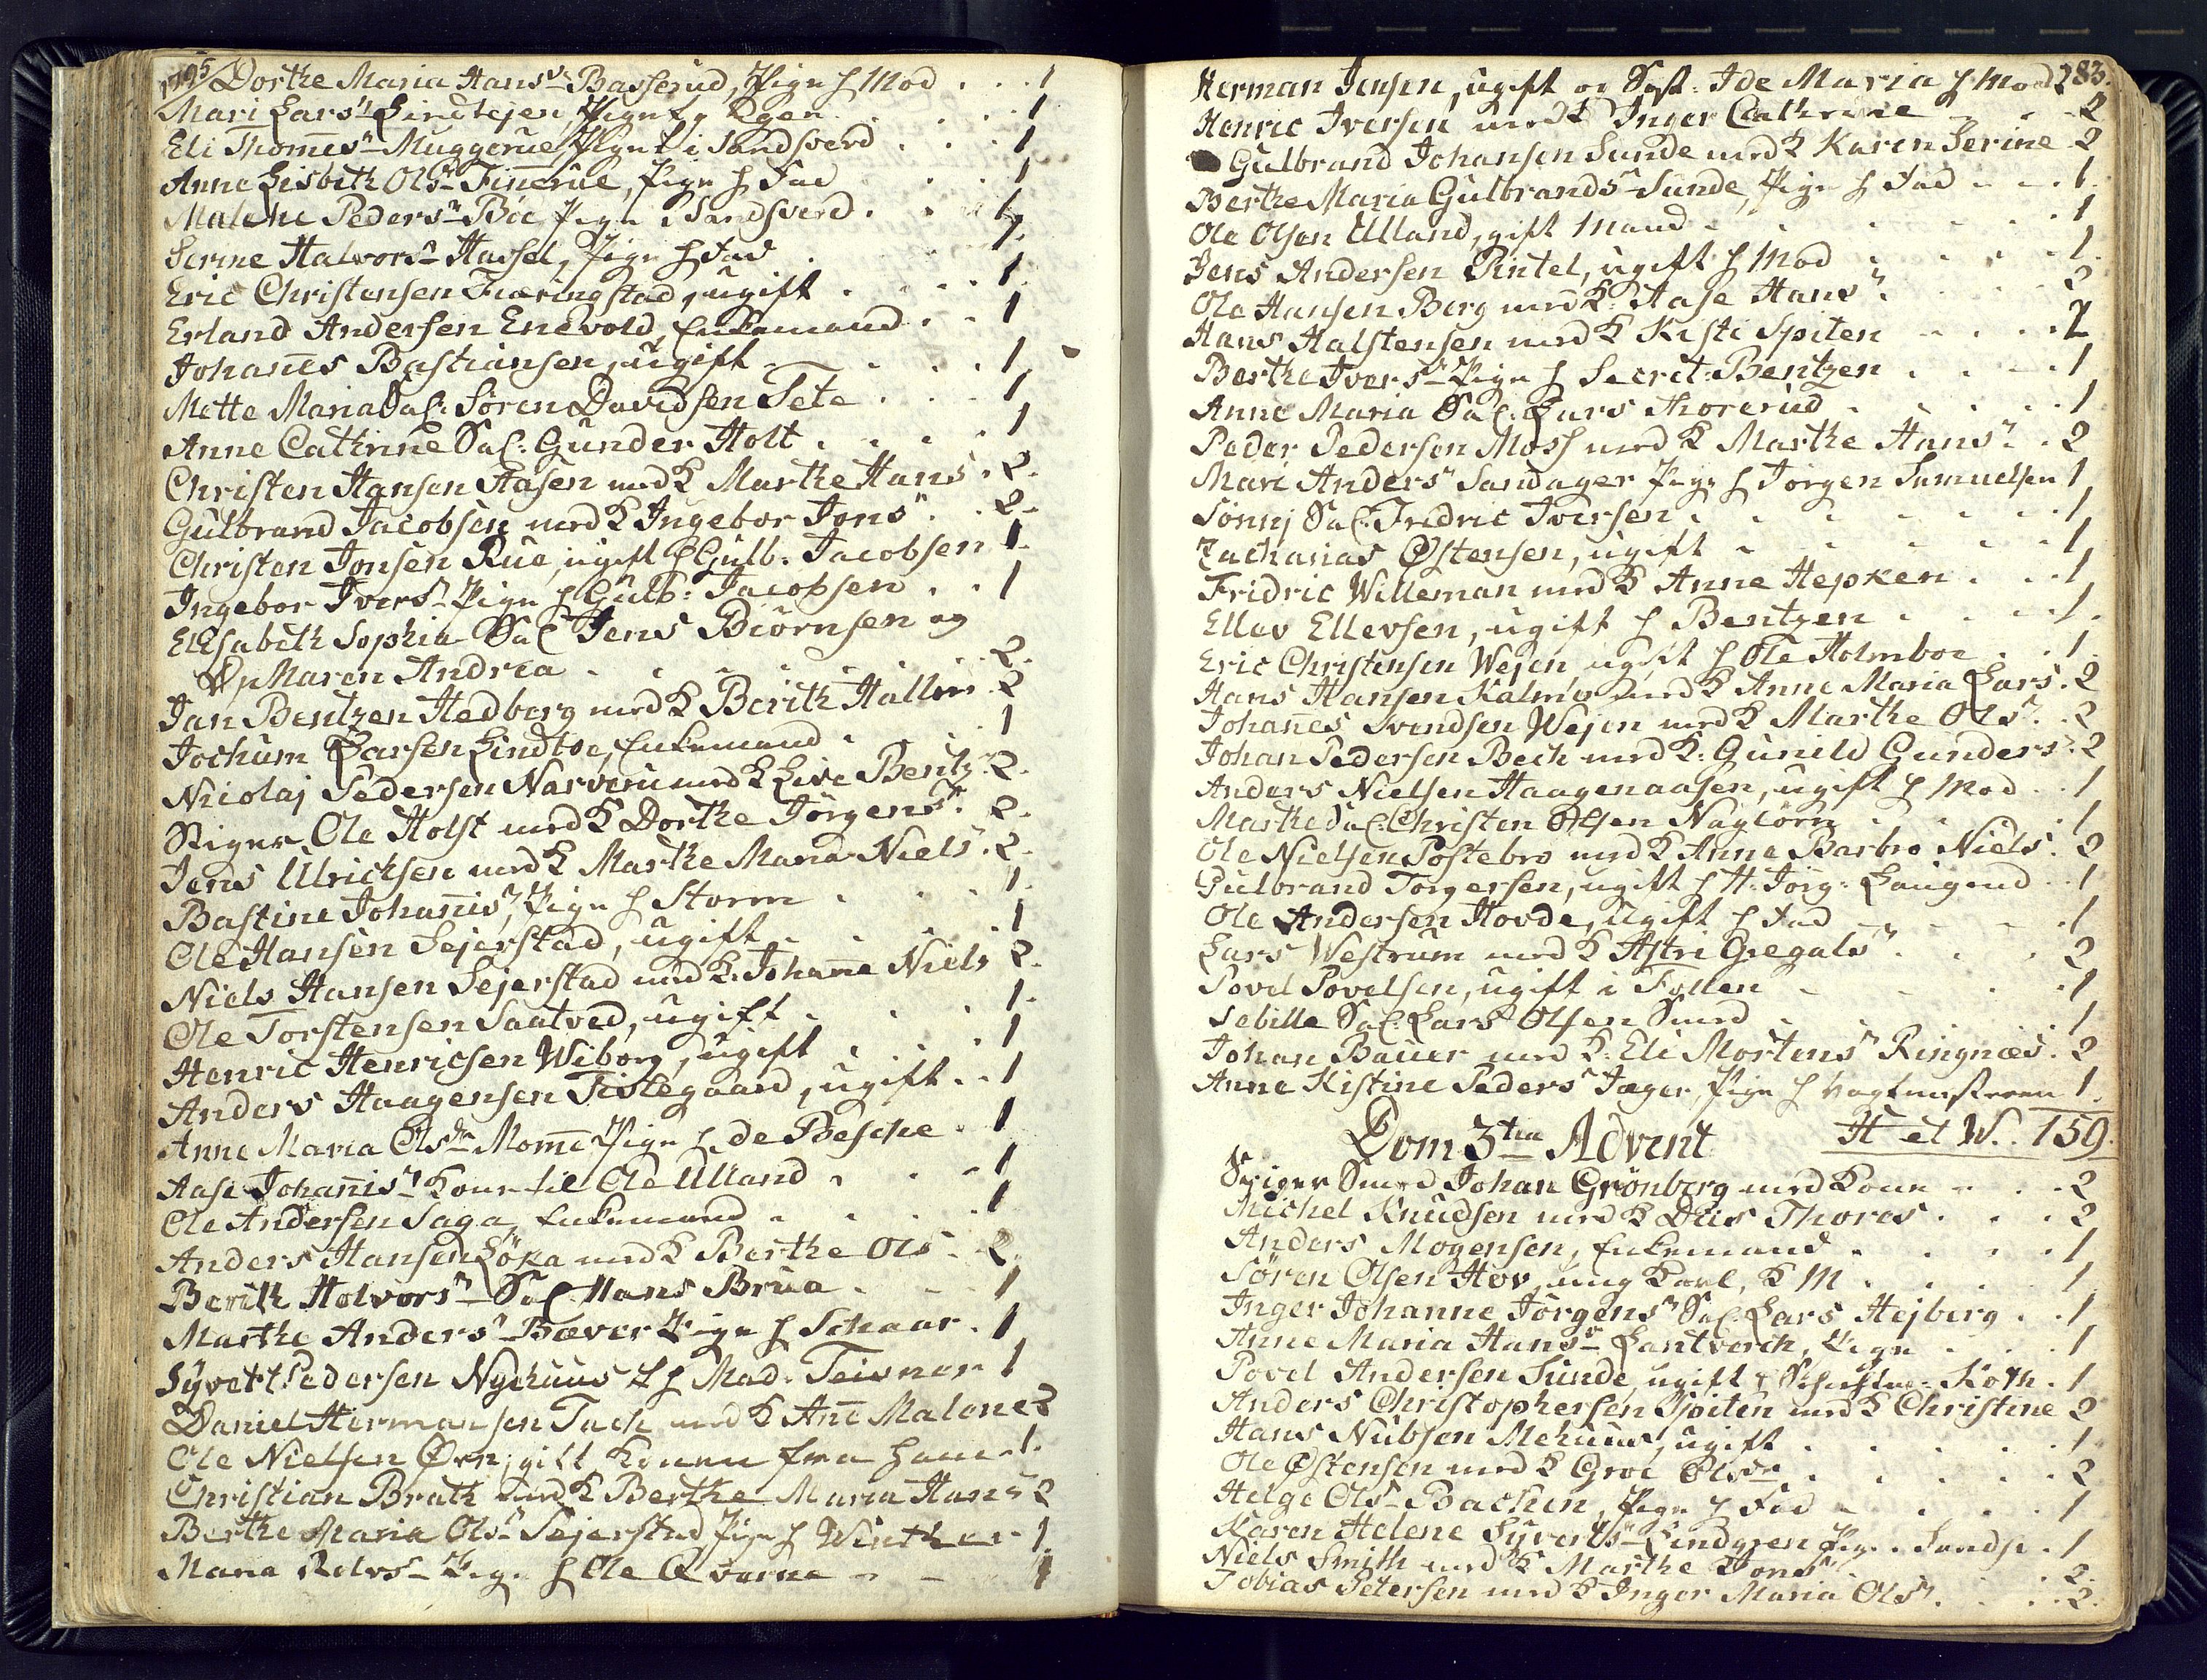 1795 Dorthe Maria Hansdr Basserud, Pige h Mod . . . 1
Mari Larsdr 1
Eli Thomesdr Muggerue, Pige i Sandsverd . . . 1
Anne Lisbeth Olsdr Finerue, Pige h Fad . . 1
Malene Pedersdr Böe Pige i Sandsverd . . 1
Serine Halvorsdr Hassel, Pige h Fad . 1.
Eric Christensen Fiæringstad, ugift . . . . 1
Erland Andersen Enevold, Enkemand . . 1
Johanes Bastiansen, ugift . . . . 1
Mette Maria Sal: Sören Davidsen Tete . . . 1
Anne Cathrine Sal: Gunder Holt . . . . 1
Christen Hansen Aasen med K Marthe Hans . 2.
Gulbrand Jacobsen med K Ingebor Jonsdr . . 2.
Christen Jonsen Rue, ugift h Gulb: Jacobsen 1
Ingebor Iversdr Pige h Gulb: Jacobsen . . 1
Elisabeth Sophia Sal Jens Biörnsen og
Maren Andrea . . . . . 2.
Jan Bentzen Hedberg med K Berith Hallin 2
Jochum Larsen Lindtoe, Enkemand . . . 1
Nicolaj Pedersen Narverud med K Live Bentz 2.
Stiger Ole Holst med K Dorthe Jörgensdr 2.
Jens Ulrichsen med K Marthe Maria Niels. 2.
Bastine Johanisdr, Pige h Storm . . . 1.
Ole Hansen Sejerstad, ugift . . . . 1
Niels Hansen Sejerstad med K: Johanne Niels 2.
Ole Torstensen Saatved, ugift . . . 1.
Henric Henricsen Wiborg, ugift . . . 1
Anders Haagensen Tislegaard, ugift . . 1
Anne Maria Olsdr Mome Pige h de Besche . 1
Aase Johanisdr Kone til Ole Ulland . . 1
Ole Andersen Saga, Enkemand . . . 1
Anders Hansen Löka med K Berthe Ols . 2.
Berith Halvorsdr Sal Hans Brua . . . 1
Marthe Andersdr Bæver Pige h Schaar . 1
Syvert Pedersen Nyehuus h Mad. Teisner 1
Daniel Hermansen Tach med K Ane Malene 2
Ole Nielsen Örn, gift, Konen fra ham 1.
Christian Brath med K Berthe Maria Hans 2
Berthe Maria Olsdr Sejerstad Pige h Winther 1.
Maria Rolvsdr Pige h Ole Qverne . . 1
Herman Jensen, ugift og Syst: Ide Maria h Mod 2 83.
Henric Iversen med K Inger Cathrine . . . 2
Gulbrand Johansen Sunde med K Karen Serine 2
Berthe Maria Gulbrandsdr Sunde, Pige h Fad . . . 1.
Ole Olsen Ulland, gift Mand . . . . 1
Jens Andersen Pintel, ugift h Mod . . . 1.
Ole Hansen Berg med K: Aase Hansdr . . . 2
Hans Halstensen med K Kisti Spiten . . . . 2
Berthe Iversdr Pige h Secret: Bentzen . . . . 1
Anne Maria Sal: Lars Thorerud . . . . 1
Peder Pedersen Moss med K Marthe Hansdr . 2
Mari Andersdr Sandager Pige h Jörgen Samuelsen 1
Sönnj Sal: Fredric Iversen . . . . . . 1
Zacharias Östensen, ugift . . . . . . 1
Fridric Willeman med K Anne Hepken . . . 1
Ellev Ellevsen, ugift h Bentzen . . . . 1.
Eric Christensen Wejen ugift h Ole Holmboe . . 1.
Hans Hansen Kalmöe med K Anne Maria Lars. 2
Johanes Svendsen Wejen med K Marthe Olsdr. . 2
Johan Pedersen Bech med K: Gunild Gunders 2
Anders Nielsen Haagenaasen, ugift h Mod . . 1
Marthe Sal: Christen Olsen Naglörn . . . 1
Ole Nielsen Postebro med K Anne Barbro Niels. 2
Gulbrand Torgersen, ugift h H: Jörg: Laugend . . 1
Ole Andersen Hovde, ugift h Fad . . . . 1
Lars Westrum med K Astri Gregalsdr . . . 2
Povel Povelsen, ugift i Follen . . . . 1
Sebille Sal: Lars Olsen Smed . . . . 1
Johan Bauer med K: Eli Mortensdr Ringnæs . 2
Anne Kistine Pedersdr Jæger, Pige h Vagtmesteren 1.
Dom 3tia Advent H et W. . 159.
Stiger Smed Johan Grönberg med Kone . . . 2
Michel Knudsen med K Deis Thores . . . 2
Anders Mogensen, Enkemand . . . . 1
Sören Olsen Hov, ung Karl, K M . . . . 1
Inger Johanne Jörgensdr Sal. Lars Hejberg . . 1
Anne Maria Hansdr Lantverch, Pige . . . 1
Povel Andersen Sunde, ugift h Koth . 1
Anders Christophersen Spiten med K Christine 2
Hans Nubsen Mehuus, ugift . . . . . 1.
Ole Östensen med K Groe Olsdr . . . . . 2
Helge Olsdr Bachen, Pige h Fad . . . . 1
Karen Helene Syvertsdr Lindgren Pige . Sands . 1
Niels Smith med K Marthe Jonsdr . . 2.
Tobias Petersen med K Inger Maria Olsdr . . . 2.